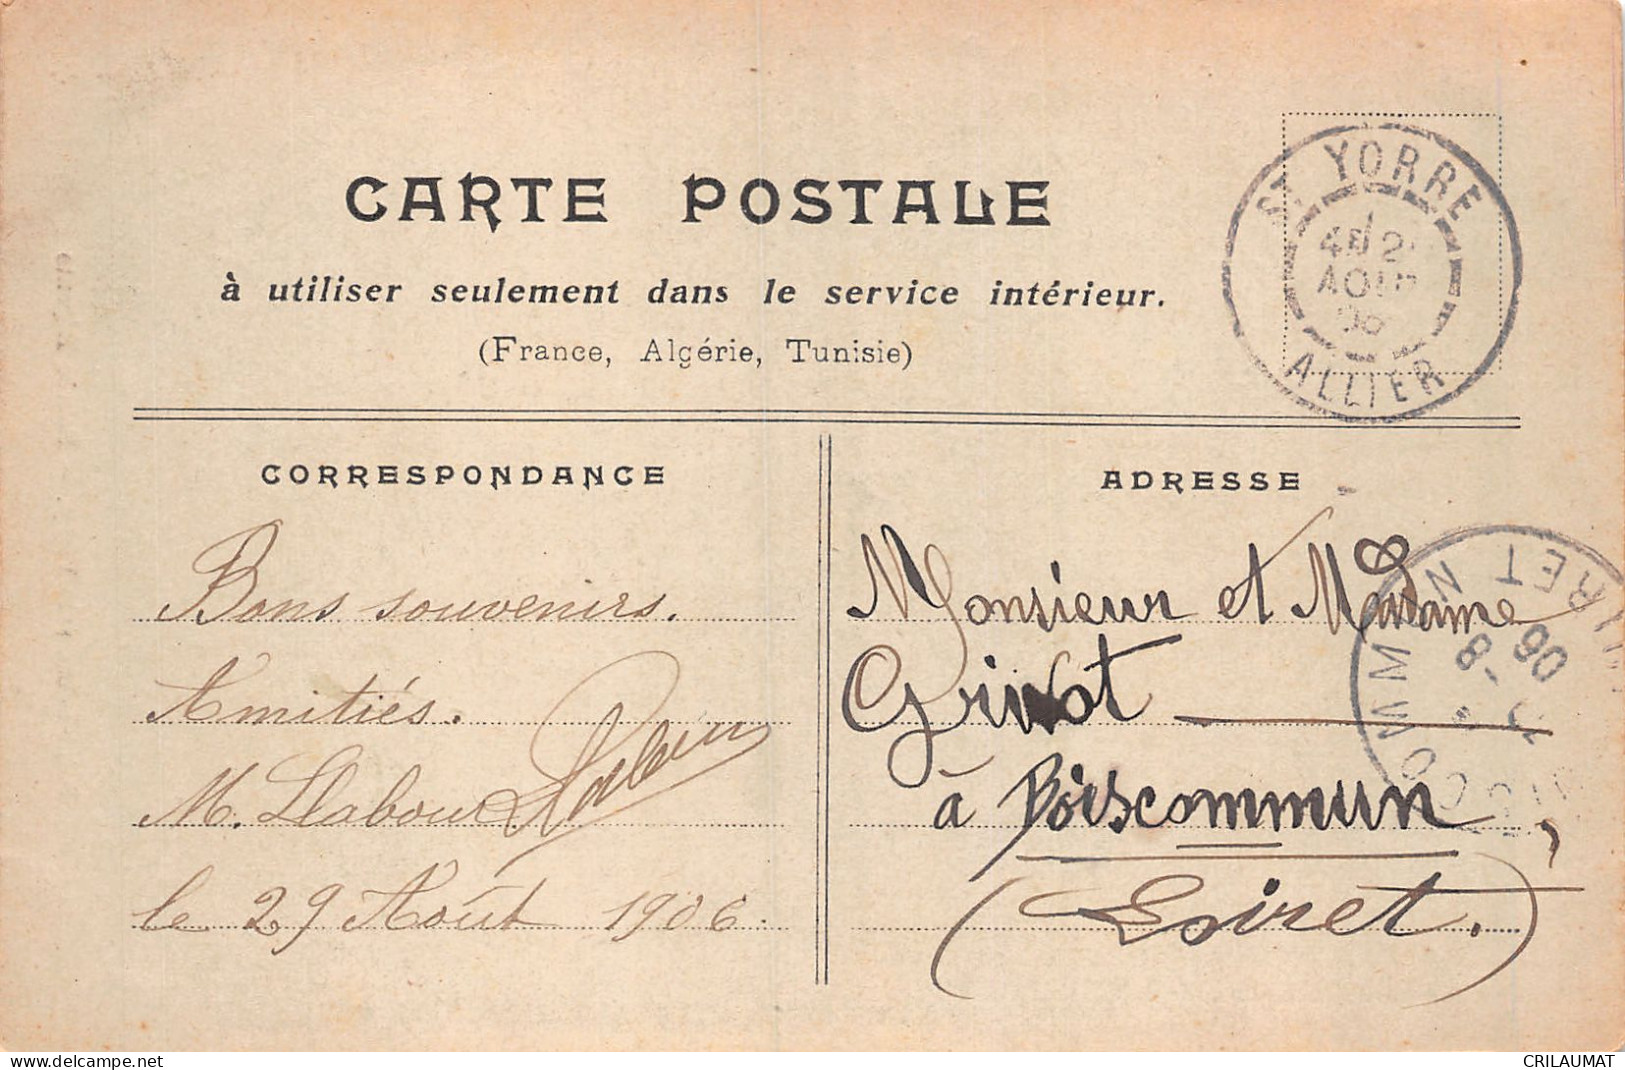 CARTE POSTALE
à utiliser seulement dans le service intérieur.
(France, Algérie, Tunisie)
ST YORRE
AOUT
06
ALLIER
CORRESPONDANCE
Bons souvenirs.
Amitiés.
M.
le 29 Août 1906.
ADRESSE
Monsieur et Madame
Grivot
à Boiscommun,
(Loiret.)
delcampe.net
CRILAUMAT